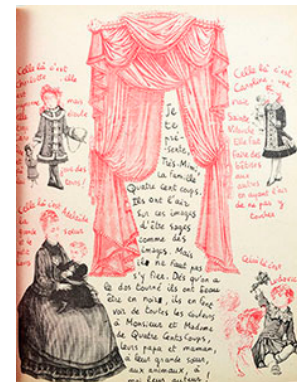 Celle là c'est
Charlotte . elle
est
mais
toute
joue des
tours !
Celle là c'est
Caroline . une
vraie
Sainte
Nitouche
Elle fait
faire des
bêtises
aux
autres
en ayant l'air
de ne pas y
toucher
Je
te
pré-
sente,
Très-Mimi,
la famille
Quatre cent coups.
Ils ont l'air
sur ces images
d'être sages
comme des
images. Mais
il ne faut pas
s'y fier. Dès qu'on a
le dos tourné ils ont beau
être en noir, ils en font
voir de toutes les couleurs
à Monsieur et Madame
de Quatre Cents Coups,
leurs papa et maman,
à leur grande sœur,
aux animaux, à
moi leur auteur
Celle là c'est Adélaïde
la
grande
sœur
et le
petit
Celui là c'est